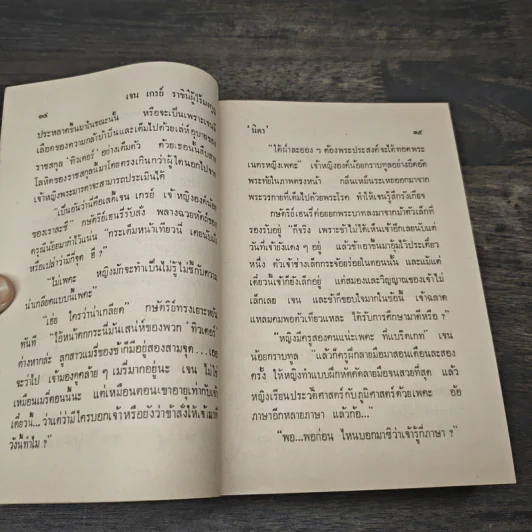 ๑๘ เจน เกรย์ ราชินีผู้เริ่ม
ประหลาดขึ้นมาในขณะนั้น หรือจะเป็นเพราะเจนมี
เลือดของความกล้าบ้าบิ่นและเต็มไปด้วยเล่ห์อุบายของ
ราชสกุล “ทิวเดอร์” อย่างเต็มตัว ด้วยเธอนั้นสืบสาย
โลหิตของราชสกุลนี้มาโดยตรงเกินกว่าผู้ใดนอกไปจาก
เจ้าหญิงพระมารดาจะสามารถประเมินได้
“เป็นอันว่านี่คือเลดี้เจน เกรย์ เจ้าหญิงองค์น้อย
ของเราละซี” กษัตริย์เฮนรี่รับสั่ง พลางฉวยหัตถ์ของ
ดรุณีน้อยมากำไว้แน่น “กระเดี๋ยมหน้าเที่ยวนี้
หรือเปล่าว่ามีกี่จุด ฮึ ?”
“ไม่เพคะ หญิงมักจะทำเป็นไม่รู้ไม่ชี้กับความ
น่าเกลียดแบบนี้เพคะ”
“เฮ่ย ใครว่าน่าเกลียด” กษัตริย์ทรงเยาะหยัน
ทันที “ไอ้หน้าตกกระนี่มันเสน่ห์ของพวก ‘ทิวเดอร์’
ต่างหากล่ะ ลูกสาวแมรี่ของข้าก็มีอยู่สองสามจุด...เออ
จะว่าไป เจ้ามองดูคล้าย ๆ เมรี่มากอยู่นะ เจน ไม่ใช่
เหมือนเมรี่ตอนนี้นะ แต่เหมือนตอนเขาอายุเท่ากับเจ้า
เดี๋ยวนี้...ว่าแต่ว่ามีใครบอกเจ้าหรือยังว่าข้าสั่งให้เจ้ามาที่
วังนี้ทำไม ?”
‘นิดา’ ๑๙
“ได้ฝ่าละออง ๆ ต้องพระประสงค์จะได้ทอดพระ
เนตรหญิงเพคะ” เจ้าหญิงองค์น้อยกราบทูลอย่างอึดอัด
พระทัยในภาพตรงหน้า กลิ่นเหม็นระเหยออกมาจาก
พระวรกายที่เต็มไปด้วยพระโรค ทำให้เจนรู้สึกรังเกียจ
กษัตริย์เฮนรี่ค่อยยกพระบาทลงมาจากม้าตัวเล็กที่
รองรับอยู่ “ก็จริง เพราะข้าไม่ได้เห็นเจ้าอีกเลยนับแต่
วันที่เจ้ายังแดง ๆ อยู่ แล้วข้าเอาขึ้นมาอุ้มไว้ประเดี๋ยว
หนึ่ง ตัวเจ้าช่างเล็กกระจ้อยร่อยในตอนนั้น และแม้แต่
เดี๋ยวนี้เจ้าก็ยังเล็กอยู่ แต่สมองและวิญญาณของเจ้าไม่
เล็กเลย เจน และข้าก็ชอบใจมากในข้อนี้ เจ้าฉลาด
แหลมคมพอตัวเทียวแหละ ได้รับการศึกษามาดีหรือ ?”
“หญิงมีครูสองคนแน่ะเพคะ ที่แบรัดเกท” เจน
น้อยกราบทูล “แล้วก็ครูฝึกลายมือมาสอนเดือนละสอง
ครั้ง ให้หญิงทำแบบฝึกหัดคัดลายมือจนสวยที่สุด แล้ว
หญิงเรียนประวัติศาสตร์กับภูมิศาสตร์ด้วยเพคะ อ้อ
ภาษาอีกหลายภาษา แล้วก้อ...”
“พอ...พอก่อน ไหนบอกมาซิว่าเจ้ารู้กี่ภาษา ?”